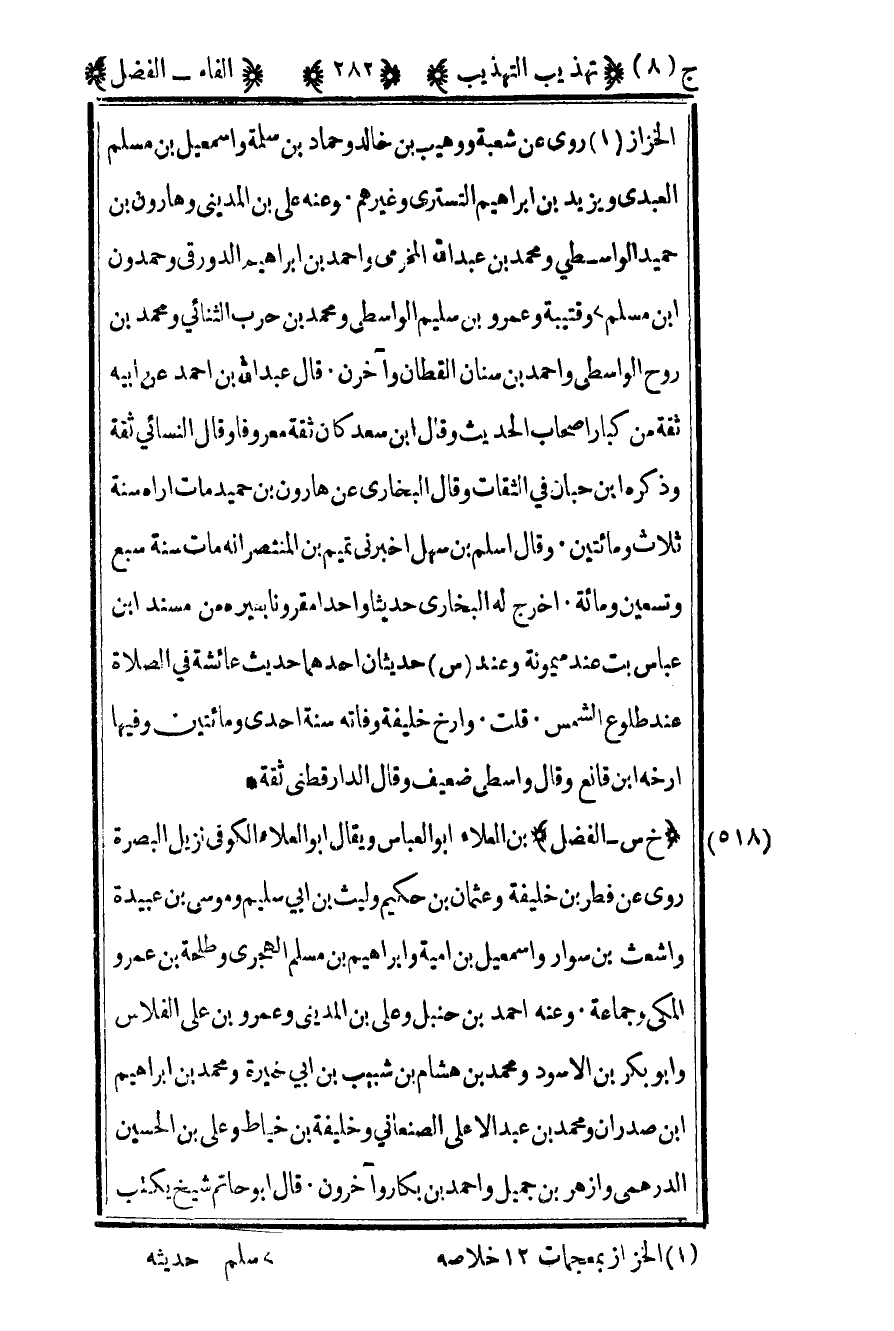 ج (٨) ﴿ تهذيب التهذيب ﴾ ﴿ ٢٨٢ ﴾ ﴿ الفاء ــ الفضل ﴾
الخزاز (١) روى عن شعبة ووهيب بن خالد وحماد بن سلمة واسمعيل بن مسلم
العبدى ويزيد بن ابراهيم التسترى وغيرهم ٠ وعنه على بن المدينى وهارون بن
حميد الواسطي ومحمد بن عبدالله المخرمى واحمد بن ابراهيم الدورقى وحمدون
ابن مسلم > وقتيبة وعمرو بن سليم الواسطى ومحمد بن حرب الثنائي ومحمد بن
روح الواسطى واحمد بن سنان القطان وآخرن ٠ قال عبدالله بن احمد عن ابيه
ثقة من كبار اصحاب الحديث وقال ابن سعد كان ثقة معروفا وقال النسائي ثقة
وذكره ابن حبان في الثقات وقال البخارى عن هارون بن حميد مات اراه سنة
ثلاث ومائتين ٠ وقال اسلم بن سهل اخبرنى تميم بن المنتصر انه مات سنة سبع
وتسعين ومائة ٠ اخرج له البخارى حديثا واحدا مقرونا بغيره من مسند ابن
عباس بت عند ميمونة وعند (س) حديثان احدهما حديث عائشة في الصلاة
عند طلوع الشمس ٠ قلت ٠ وارخ خليفة وفاته سنة احدى ومائتين وفيها
ارخه ابن قانع وقال واسطى ضعيف وقال الدارقطنى ثقة •
(٥١٨) ﴿ خ س ــ الفضل ﴾ بن العلاء ابو العباس ويقال ابو العلاء الكوفى نزيل البصرة
روى عن فطر بن خليفة وعثمان بن حكيم وليث بن ابي سليم وموسى بن عبيدة
واشعث بن سوار واسمعيل بن امية وابراهيم بن مسلم الهجرى وطلحة بن عمرو
المكى وجماعة ٠ وعنه احمد بن حنبل وعلى بن المدينى وعمرو بن على الفلاس
وابو بكر بن الاسود ومحمد بن هشام بن شبيب بن ابي خيرة ومحمد بن ابراهيم
ابن صدران ومحمد بن عبدالاعلى الصنعاني وخليفة بن خياط وعلى بن الحسين
الدرهمى وازهر بن جميل واحمد بن بكار وآخرون ٠ قال ابو حاتم شيخ يكتب
(١) الخزاز بمعجمات ١٢ خلاصه > سلم حديثه